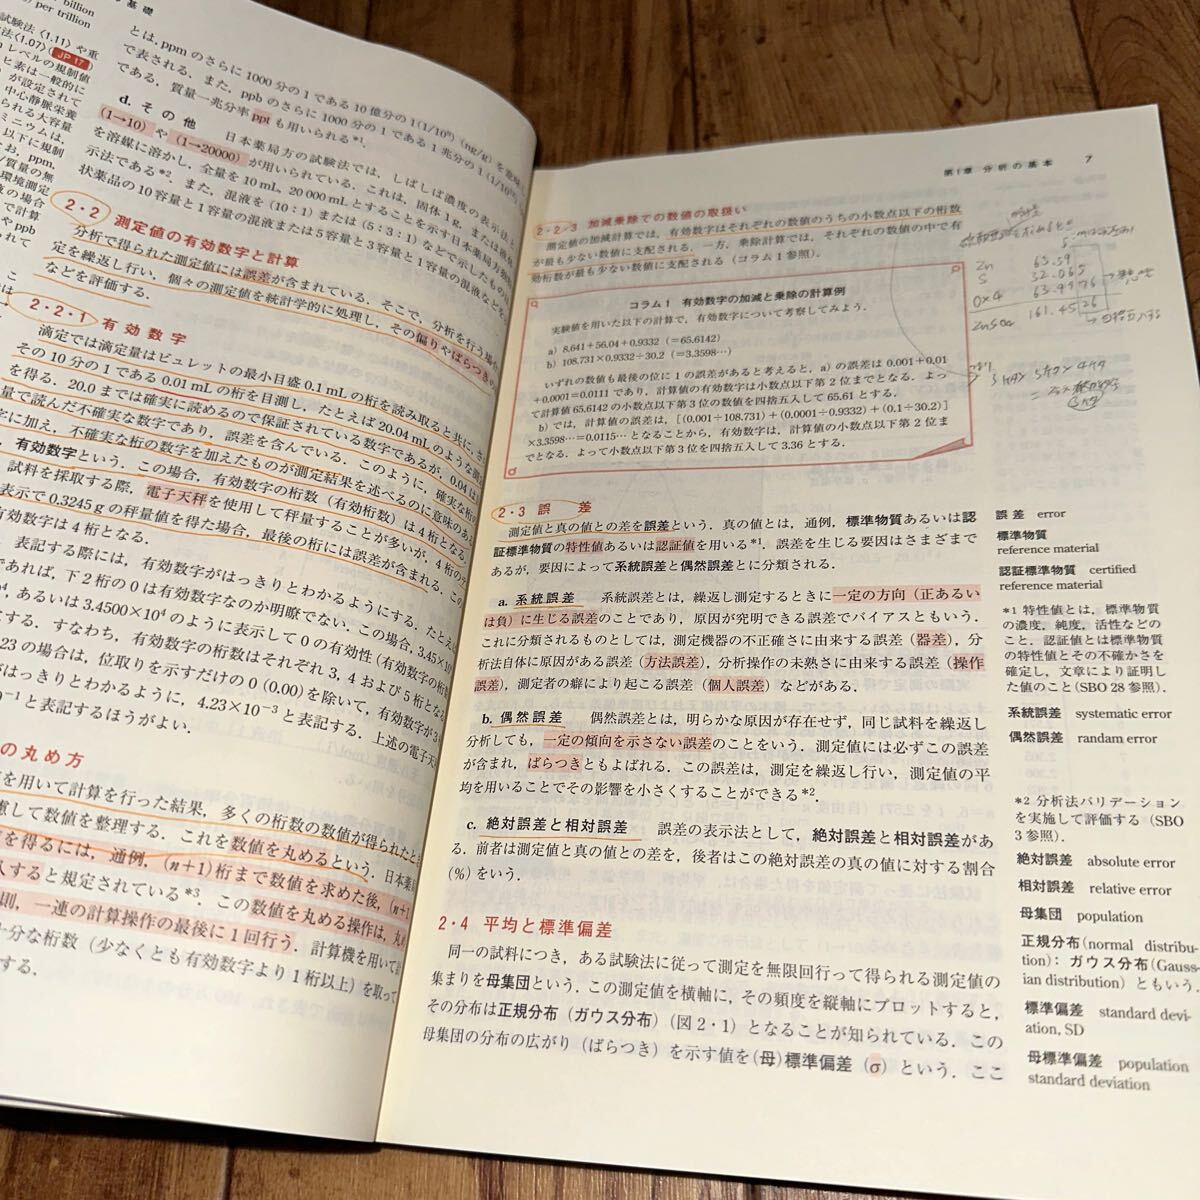 の基礎
billion
per trillion
試験法〈1.11〉や重
法〈1.07〉(JP 17)
レベルの規制値
ヒ素は一般的に
が設定されて
中心静脈栄養
られる大容量
ミニウムは,
以下に規制
お, ppm,
/質量の無
環境測定
の場合
で計算
や ppb
れて
とは, ppm のさらに 1000 分の 1 である 10 億分の 1(1/10⁹)(ng/g) を意味し
で表される. また, ppb のさらに 1000 分の 1 である 1 兆分の 1 (1/10¹²)
である, 質量一兆分率 ppt も用いられる*¹.
d. その他 日本薬局方の試験法では, しばしば濃度の表示法と
(1→10) や (1→20000) が用いられている. これは, 固体 1 g, または液体
を溶媒に溶かし, 全量を 10 mL, 20 000 mL とすることを示す日本薬局方
示法である*². また, 混液を (10:1) または (5:3:1) などで示したもの
状薬品の 10 容量と 1 容量の混液または 5 容量と 3 容量と 1 容量の混液など
2・2 測定値の有効数字と計算
分析で得られた測定値には誤差が含まれている. そこで, 分析を行う場合
定を繰返し行い, 個々の測定値を統計学的に処理し, その偏りやばらつきの
などを評価する.
2・2・1 有効数字
滴定では滴定量はビュレットの最小目盛 0.1 mL の桁を読み取ると共に, さ
その 10 分の 1 である 0.01 mL の桁を目測し, たとえば 20.04 mL のような測定
を得る. 20.0 までは確実に読めるので保証されている数字であるが, 0.04 は
量で読んだ不確実な数字であり, 誤差を含んでいる. このように, 確実な桁の
字に加え, 不確実な桁の数字を加えたものが測定結果を述べるのに意味のある
有効数字という. この場合, 有効数字の桁数 (有効桁数) は 4 桁となる.
試料を採取する際, 電子天秤を使用して秤量することが多いが, 4 桁のデ
表示で 0.3245 g の秤量値を得た場合, 最後の桁には誤差が含まれる. この
有効数字は 4 桁となる.
表記する際には, 有効数字がはっきりとわかるようにする. たとえ
であれば, 下 2 桁の 0 は有効数字なのか明瞭でない. この場合, 3.45×10
⁴, あるいは 3.4500×10⁴ のように表示して 0 の有効性 (有効数字の桁
とする. すなわち, 有効数字の桁数はそれぞれ 3, 4 および 5 桁となる
23 の場合は, 位取りを示すだけの 0 (0.00) を除いて, 有効数字が 3
がはっきりとわかるように, 4.23×10⁻³ と表記する. 上述の電子天秤
⁻¹ と表記するほうがよい.
の丸め方
を用いて計算を行った結果, 多くの桁数の数値が得られたとき
慮して数値を整理する. これを数値を丸めるという. 日本薬局
を得るには, 通例, (n+1) 桁まで数値を求めた後, (n+1
入すると規定されている*³. この数値を丸める操作は, 丸め
則, 一連の計算操作の最後に 1 回行う. 計算機を用いて計
十分な桁数 (少なくとも有効数字より 1 桁以上) を取って
する.
第1章 分析の基本 7
2・2・3 加減乗除での数値の取扱い
測定値の加減計算では, 有効数字はそれぞれの数値のうちの小数点以下の桁数
が最も少ない数値に支配される. 一方, 乗除計算では, それぞれの数値の中で有
効桁数が最も少ない数値に支配される (コラム 1 参照).
コラム 1 有効数字の加減と乗除の計算例
実験値を用いた以下の計算で, 有効数字について考察してみよう.
a) 8.641+56.04+0.9332 (=65.6142)
b) 108.731×0.9332÷30.2 (=3.3598…)
いずれの数値も最後の位に 1 の誤差があると考えると, a) の誤差は 0.001+0.01
+0.0001=0.0111 であり, 計算値の有効数字は小数点以下第 2 位までとなる. よっ
て計算値 65.6142 の小数点以下第 3 位の数値を四捨五入して 65.61 とする.
b) では, 計算値の誤差は, [(0.001÷108.731)+(0.0001÷0.9332)+(0.1÷30.2)]
×3.3598…=0.0115… となることから, 有効数字は, 計算値の小数点以下第 2 位ま
でとなる. よって小数点以下第 3 位を四捨五入して 3.36 とする.
Zn 65.39
S 32.065
O×4 63.9976
ZnSO₄ 161.4526
3ケタ× 5ケタ× 4ケタ
2・3 誤差
測定値と真の値との差を誤差という. 真の値とは, 通例, 標準物質あるいは認
証標準物質の特性値あるいは認証値を用いる*¹. 誤差を生じる要因はさまざまで
あるが, 要因によって系統誤差と偶然誤差とに分類される.
a. 系統誤差 系統誤差とは, 繰返し測定するときに一定の方向 (正あるい
は負) に生じる誤差のことであり, 原因が究明できる誤差でバイアスともいう.
これに分類されるものとしては, 測定機器の不正確さに由来する誤差 (器差), 分
析法自体に原因がある誤差 (方法誤差), 分析操作の未熟さに由来する誤差 (操作
誤差), 測定者の癖により起こる誤差 (個人誤差) などがある.
b. 偶然誤差 偶然誤差とは, 明らかな原因が存在せず, 同じ試料を繰返し
分析しても, 一定の傾向を示さない誤差のことをいう. 測定値には必ずこの誤差
が含まれ, ばらつきともよばれる. この誤差は, 測定を繰返し行い, 測定値の平
均を用いることでその影響を小さくすることができる*²
c. 絶対誤差と相対誤差 誤差の表示法として, 絶対誤差と相対誤差があ
る. 前者は測定値と真の値との差を, 後者はこの絶対誤差の真の値に対する割合
(%) をいう.
2・4 平均と標準偏差
同一の試料につき, ある試験法に従って測定を無限回行って得られる測定値の
集まりを母集団という. この測定値を横軸に, その頻度を縦軸にプロットすると,
その分布は正規分布 (ガウス分布) (図 2・1) となることが知られている. この
母集団の分布の広がり (ばらつき) を示す値を (母)標準偏差 (σ) という. ここ
誤差 error
標準物質
reference material
認証標準物質 certified
reference material
*1 特性値とは, 標準物質
の濃度, 純度, 活性などの
こと. 認証値とは標準物質
の特性値とその不確かさを
確定し, 文章により証明し
た値のこと(SBO 28 参照).
系統誤差 systematic error
偶然誤差 randam error
*2 分析法バリデーション
を実施して評価する (SBO
3 参照).
絶対誤差 absolute error
相対誤差 relative error
母集団 population
正規分布(normal distribu-
tion): ガウス分布(Gauss-
ian distribution) ともいう.
標準偏差 standard devi-
ation, SD
母標準偏差 population
standard deviation